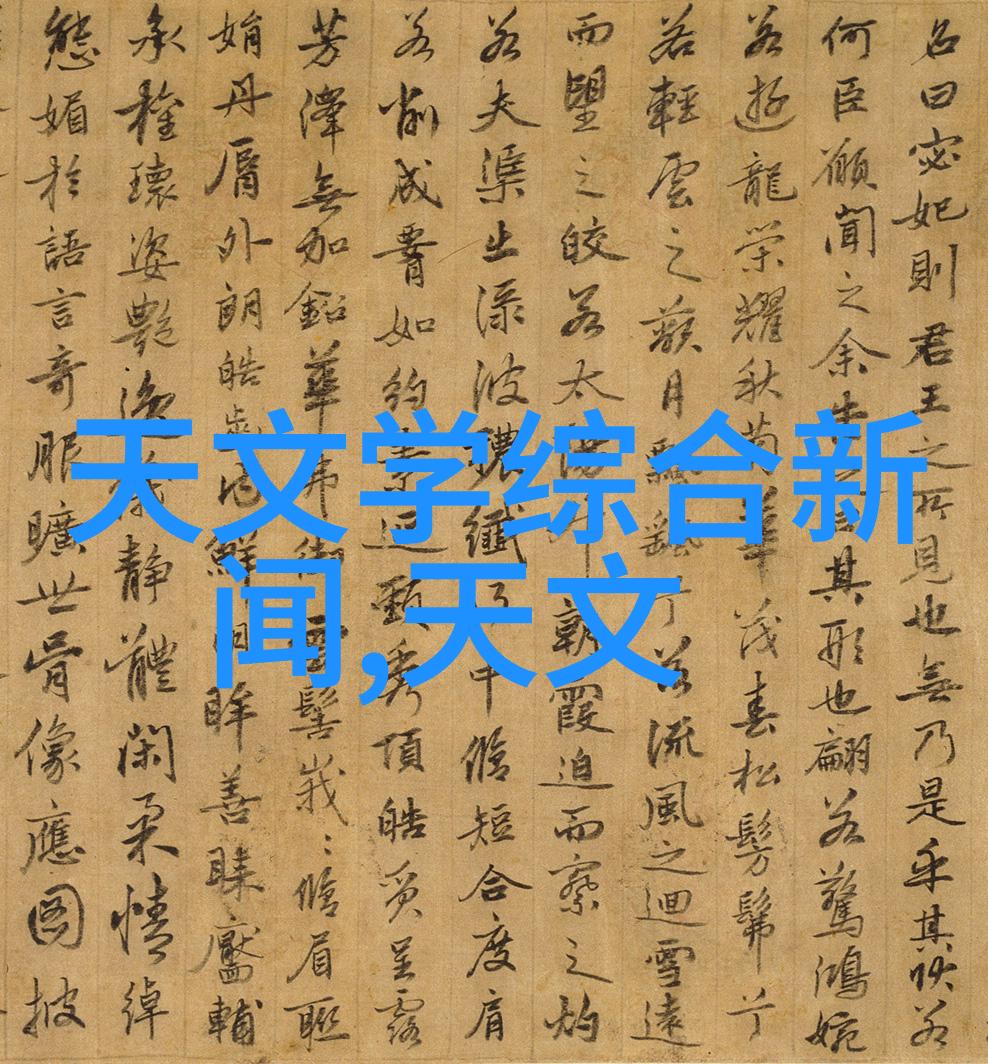 名曰宓妃則君王之所見也無乃是乎其狀若
何臣願聞之余告之曰其形也翩若驚鴻婉
若遊龍榮耀秋菊華茂春松髣髴兮
若輕雲之蔽月飄飄兮若流風之迴雪遠
而望之皎若太陽升朝霞迫而察之灼
若夫渠出淥波穠纖得中脩短合度肩
若削成腰如約素延頸秀項皓質呈露
芳澤無加鉛華弗御雲髻峩〻脩眉聯
娟丹脣外朗皓齒內鮮明眸善睞靨輔
承權瓌姿艷逸儀靜體閑柔情綽
態媚於語言奇服曠世骨像應圖披
天文学综合新
闻,天文